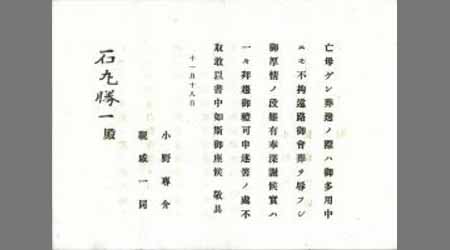 亡母ゲン葬送ノ際ハ御多用中
ニモ不拘遠路御會葬ヲ辱フシ
御厚情ノ段難有奉深謝候實ハ
一々拜趨御禮可申述筈ノ處不
取敢以書中如斯御座候 敬具
十一月十八日
小野專介
親戚一同
石丸勝一殿